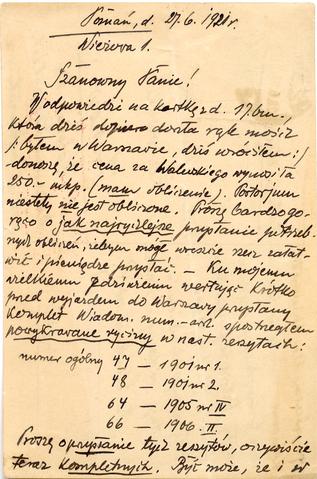 Poznań, d. 27.6.1921 r.
Wieżowa 1.
Szanowny Panie!
W odpowiedzi na kartkę z d. 17. bm.,
która dziś dopiero doszła rąk moich
/: byłem w Warszawie, dziś wróciłem :/
donoszę, że cena za Walewskiego wynosi
250.- mkp. (mam obliczenie). Portorjum
niestety nie jest obliczone. Proszę bardzo go-
rąco o jak najrychlejsze przysłanie potrzeb-
nych obliczeń, żebym mógł wreszcie rzecz załat-
wić i pieniądze przysłać. — Ku mojemu
wielkiemu zdziwieniu wertując krótko
przed wyjazdem do Warszawy przysłany
komplet Wiadom. num.-arch. spostrzegłem
powykrawane ryciny w nast. zeszytach:
numer ogólny 47 — 1901 nr 1.
48 — 1901 nr 2.
64 — 1905 nr IV
66 — 1906. II.
Proszę o przysłanie tych zeszytów, oczywiście
teraz kompletnych. Być może, że i w